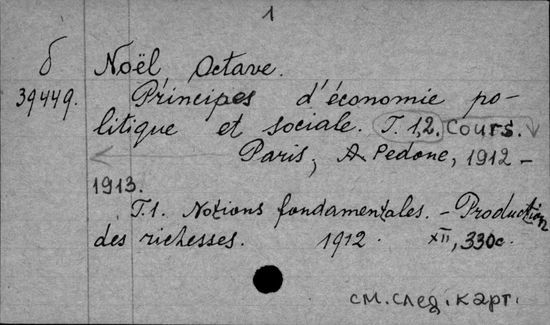 1
б Noël Octave.
39449. Principes d'économie po-
litique et sociale. T. 1,2. Cours.
Paris, A. Pedone, 1912 -
1913.
T.1. Notions fondamentales. - Production
des richesses. 1912. XII, 330c.
см. след. карт.